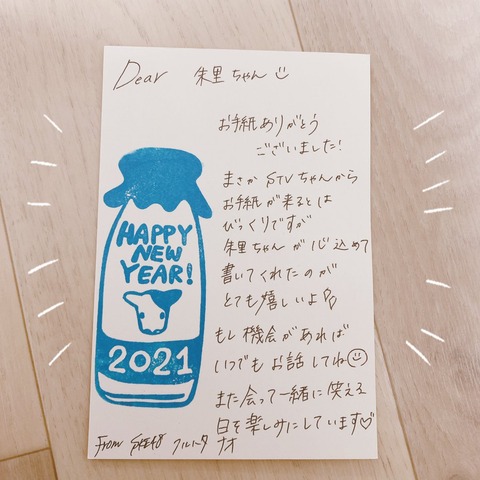 Dear 朱里ちゃん
お手紙ありがとう
ございました!
まさか STVちゃんから
お手紙が来るとは
びっくりですが
朱里ちゃんが心込めて
書いてくれたのが
とても嬉しいよ
もし機会があれば
いつでもお話してね
また会って一緒に笑える
日を楽しみにしています♡
HAPPY
NEW
YEAR!
2021
From SKE48 フルハタ
ナオ